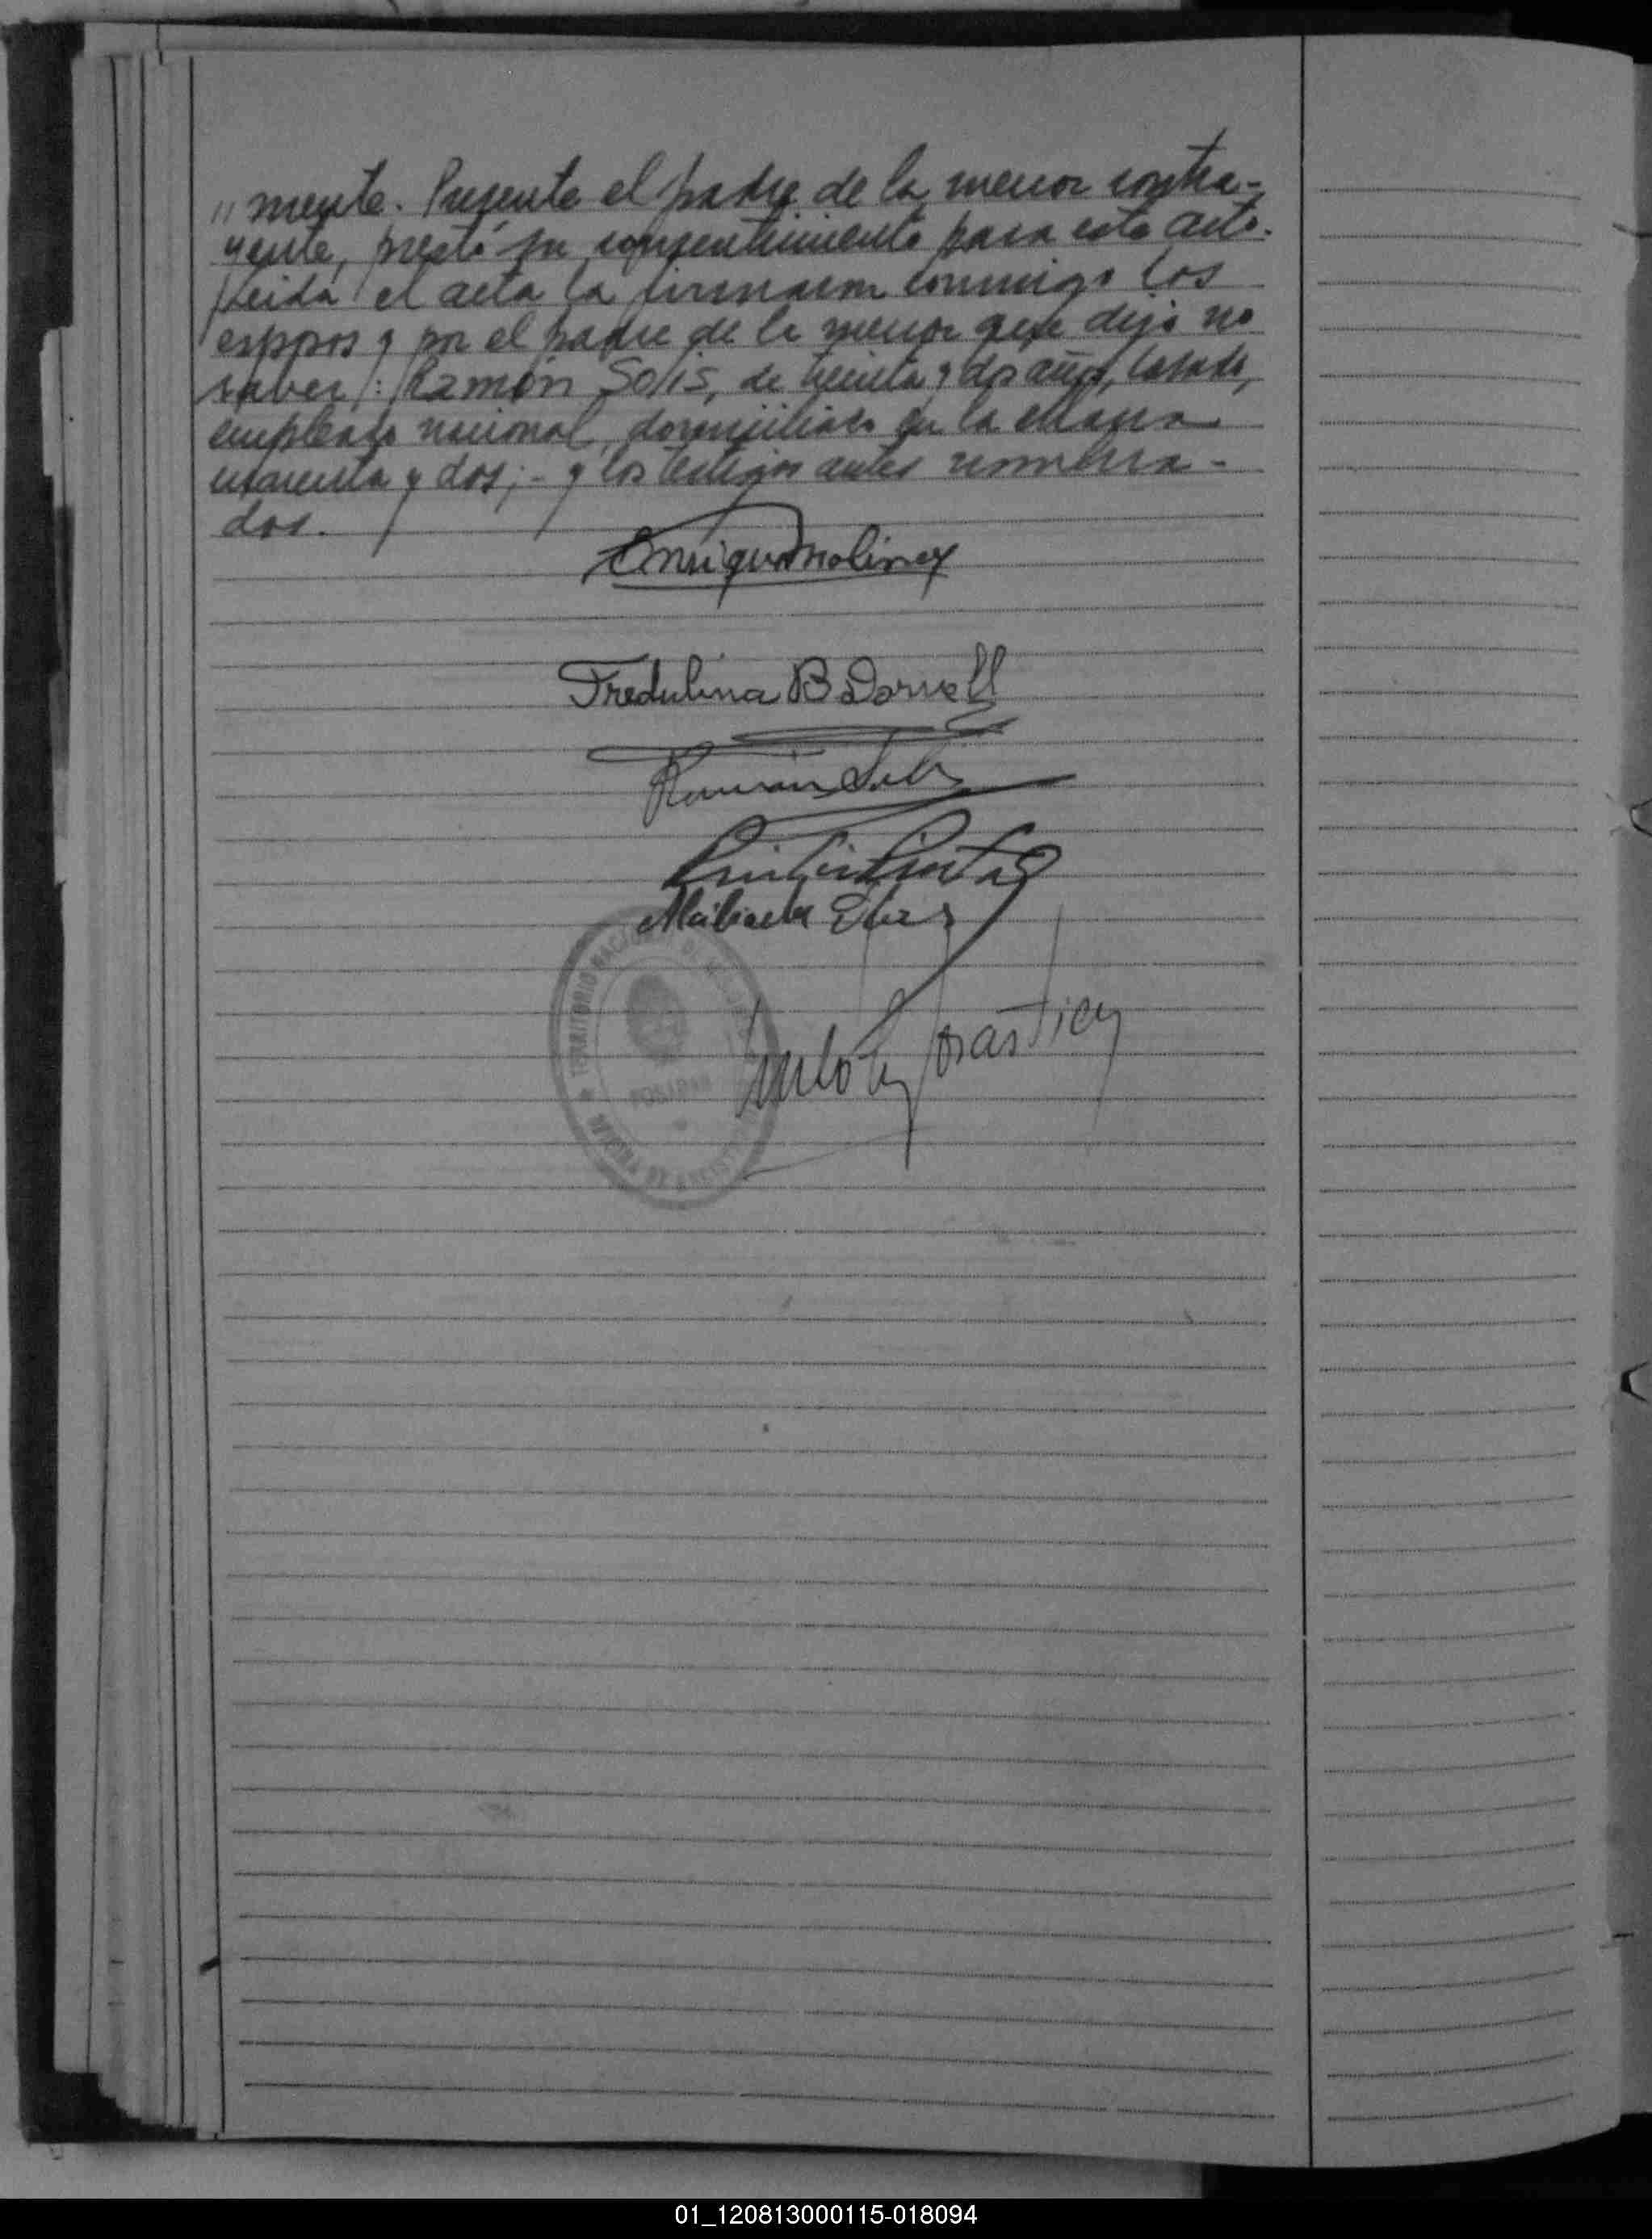 " mente. Presente el padre de la menor contra-
yente, prestó su consentimiento para este acto.
Leída el acta la firmaron conmigo los
esposos y por el padre de la menor que dijo no
saber: Ramón Solis, de treinta y dos años, casado,
empleado nacional, domiciliado en la
cuarenta y dos; - y los testigos antes nombra-
dos.
Enrique Molinez
Fredulina B Dorvell
Ramón Solis
TERRITORIO NACIONAL DE MISIONES
POSADAS
OFICINA DE REGISTRO
01_120813000115-018094